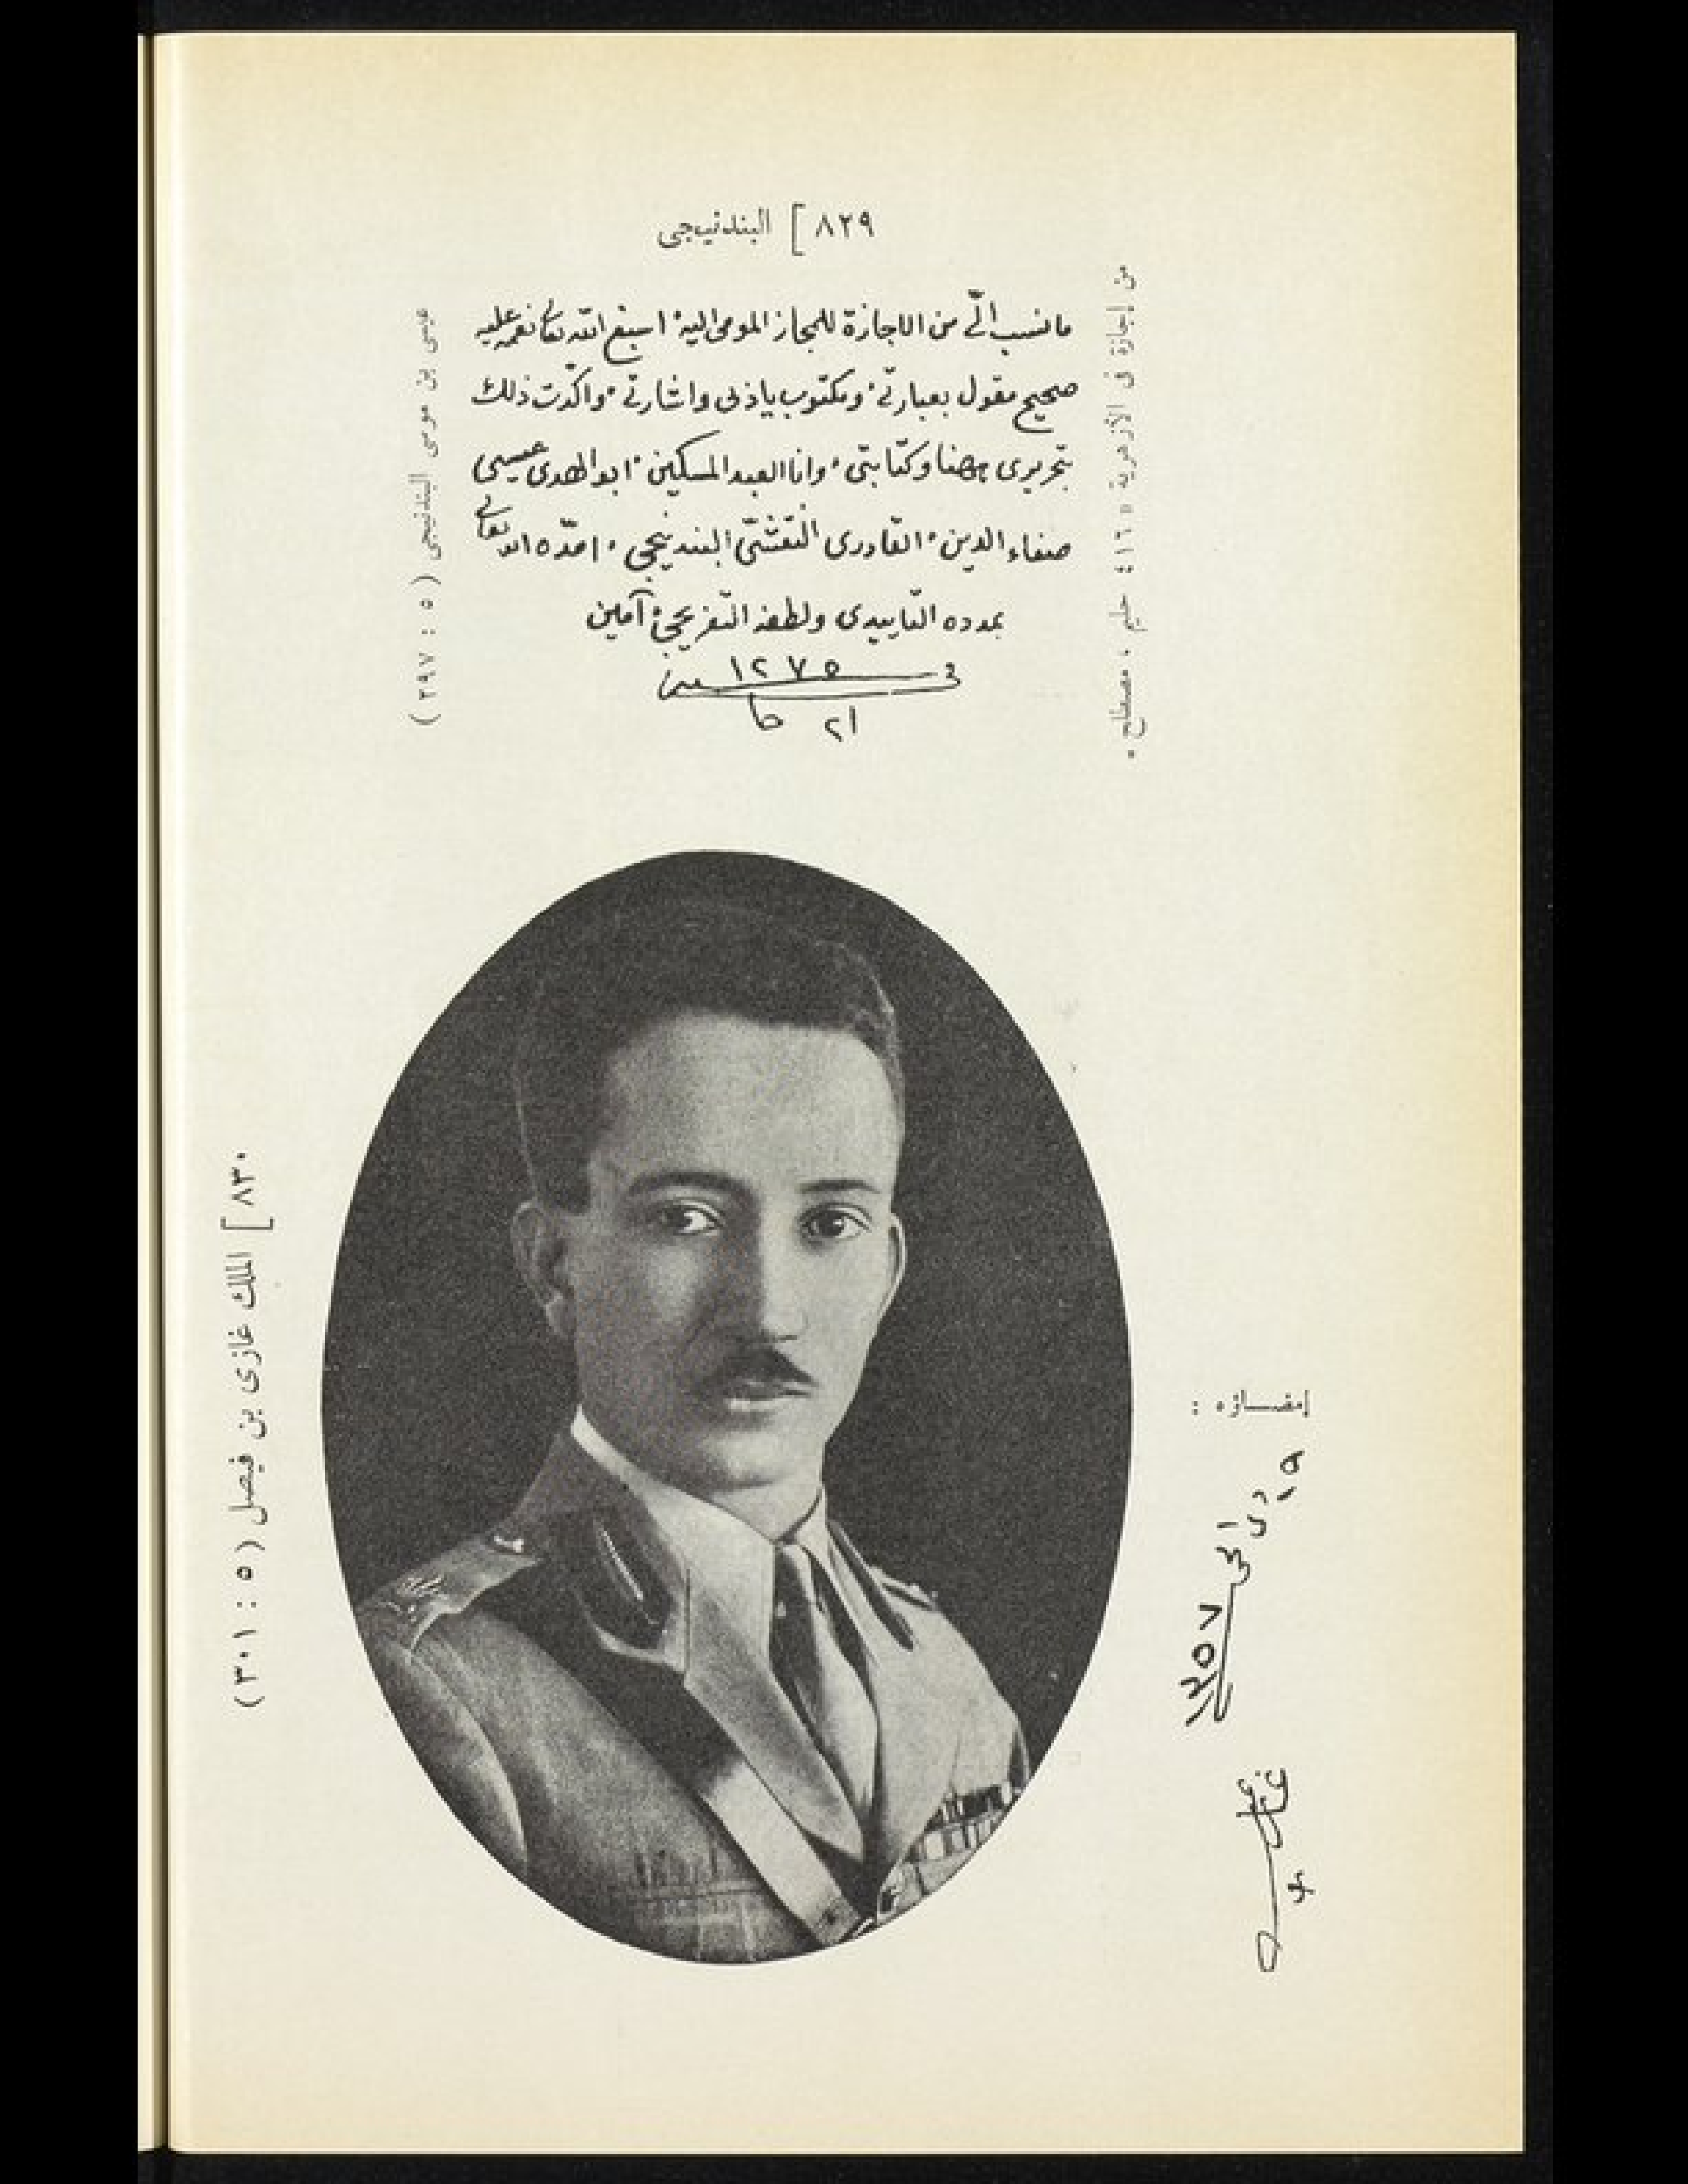 ٨٢٩ ] البندنيجى
ما نسب الىّ من الاجازة للمجاز المومى اليه اسبغ الله تعالى نعمه عليه
صحيح مقول بعبارتى ومكتوب باذنى واشارتى واكدت ذلك
بتحريرى ههنا وكتابتى وانا العبد المسكين ابو الهدى عيسى
صفاء الدين القادرى النقشبندى البندنيجى امده الله تعالى
بمدده التأييدى ولطفه
آمين
فى سنة ١٢٧٥
٢١
عيسى بن موسى البندنيجى ( ٥ : ٢٩٧ )
من إجازة فى الأزهرية « ٤١٦ حليم ، مصطلح »
٨٣٠ ] الملك غازى بن فيصل ( ٥ : ٣٠١ )
إمضاؤه :
١٥
ذى الحجة
١٣٥٧
غازى